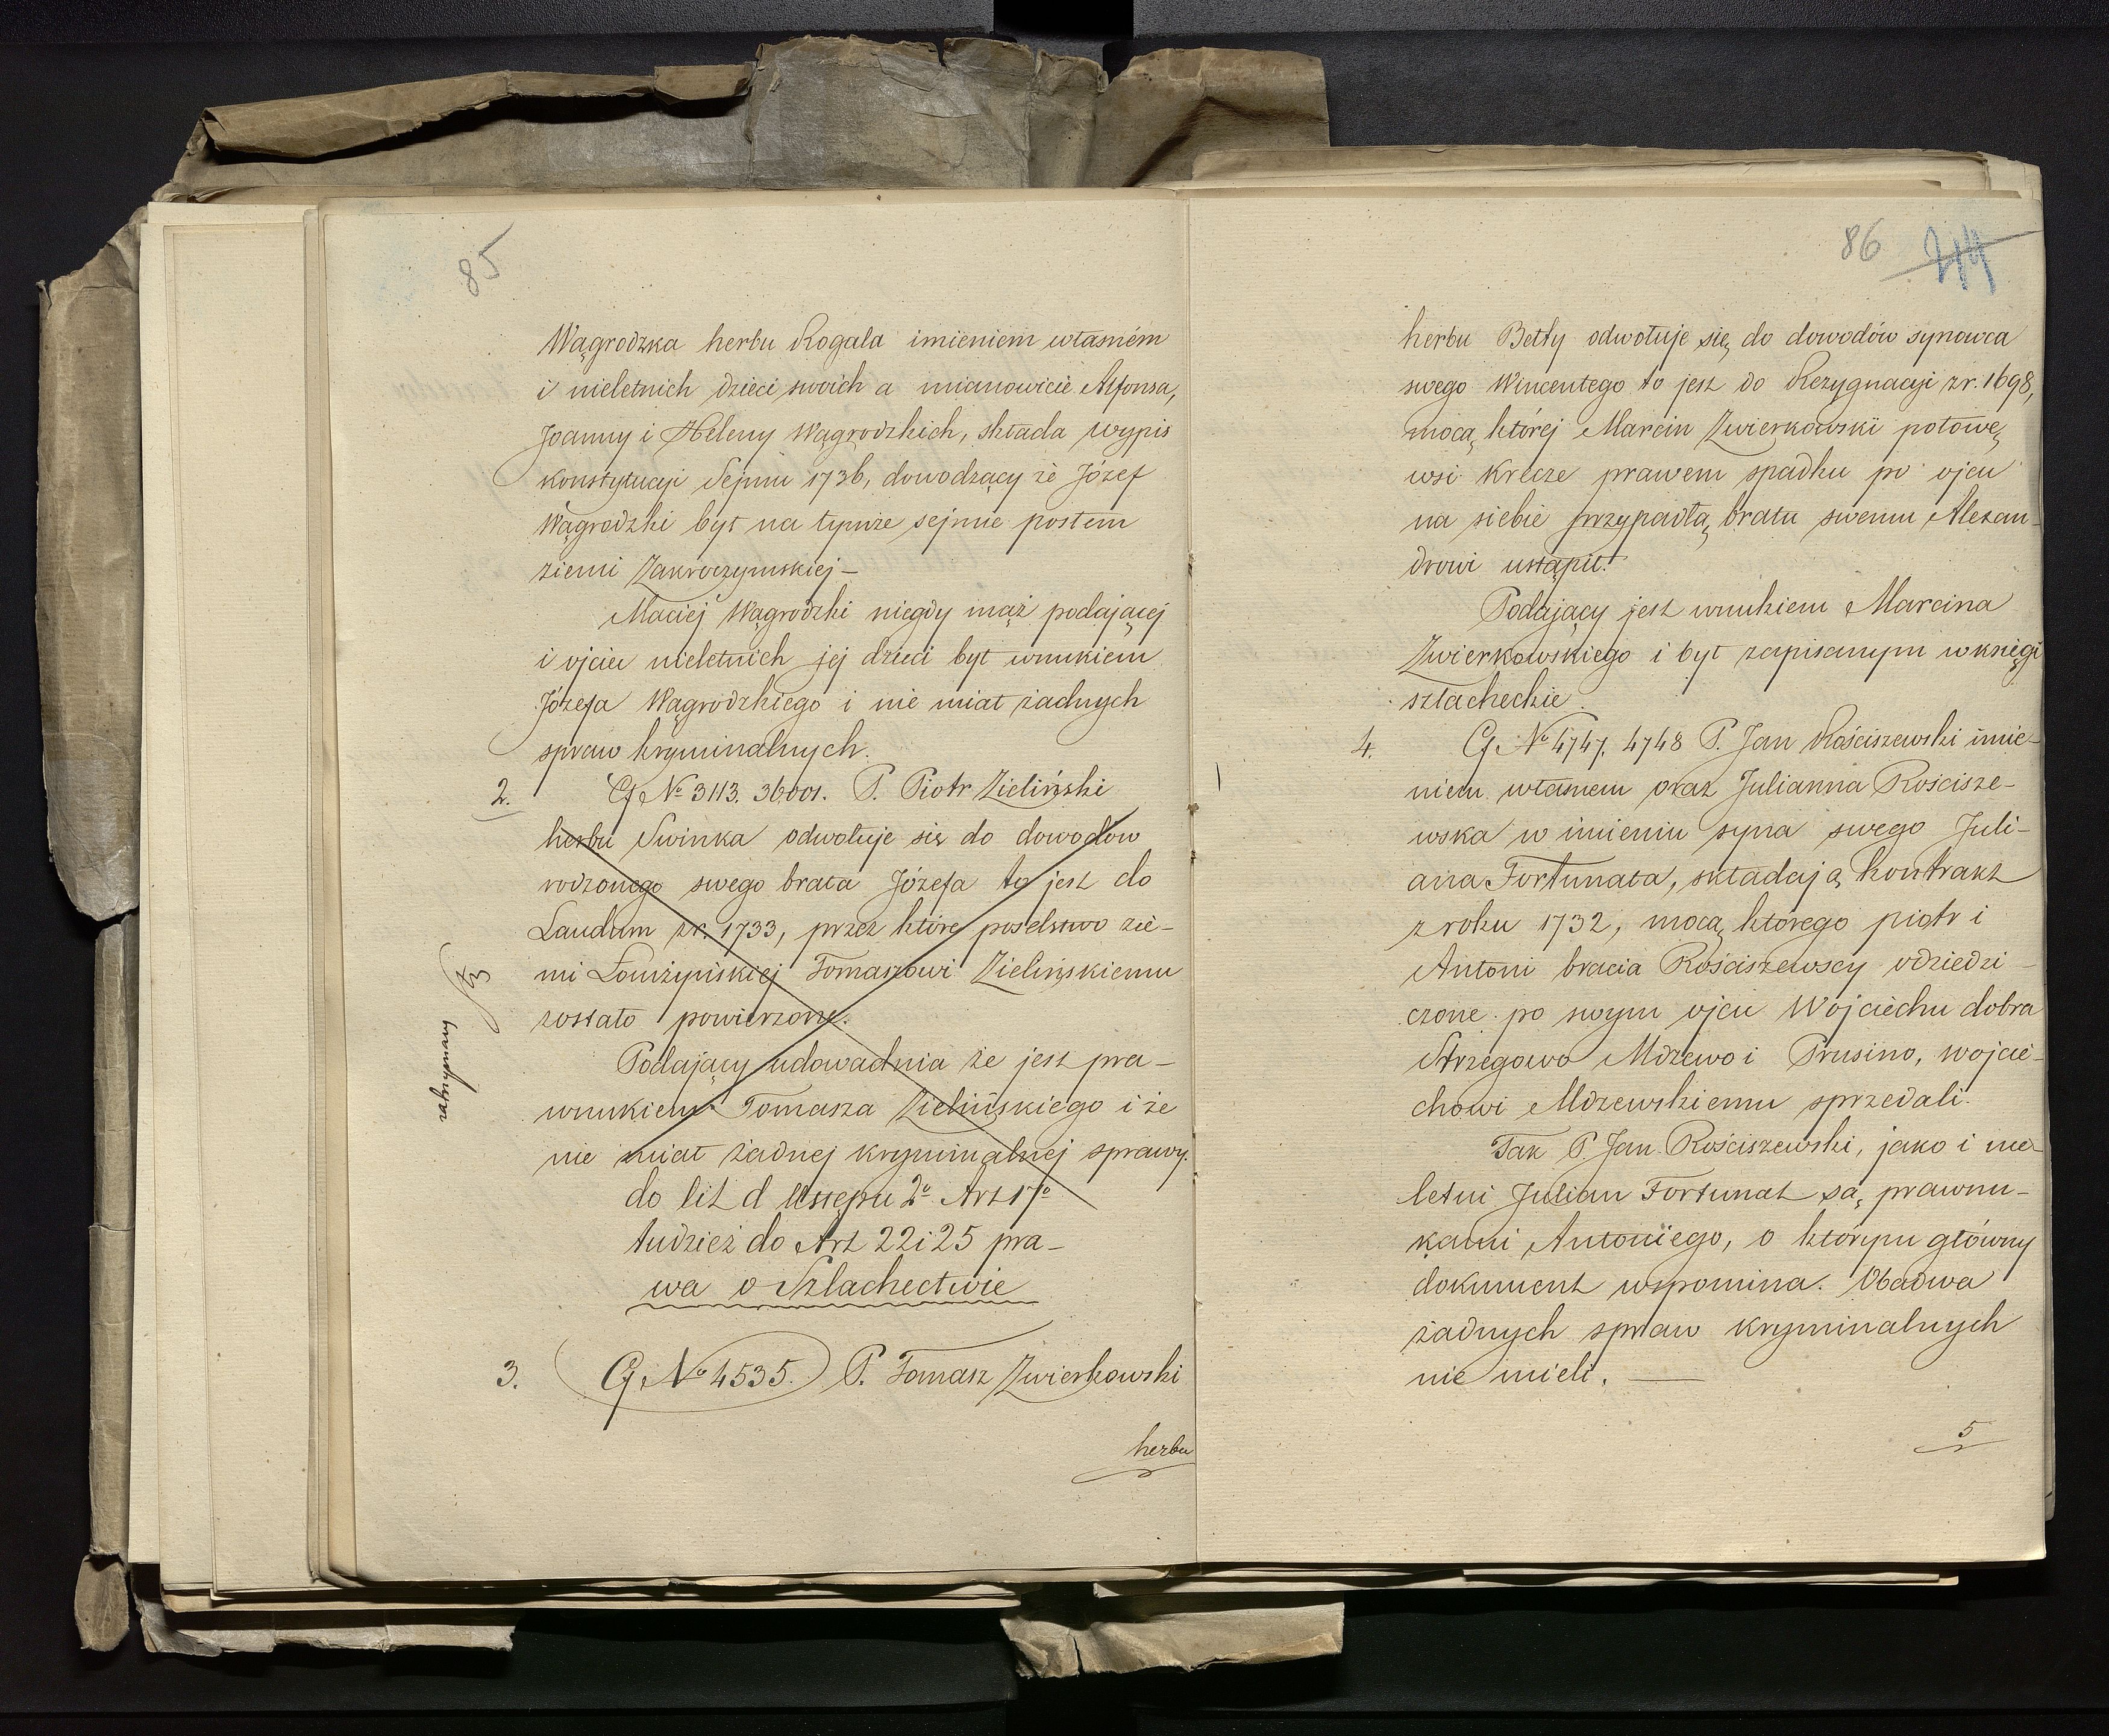 85
Wągrodzka herbu Rogala imieniem własném
i nieletnich dzieci swoich a mianowicie Alfonsa,
Joanny i Heleny Wągrodzkich, składa wypis
konstytucyi Sejmu 1736, dowodzący że Józef
Wągrodzki był na tymże sejmie posłem
ziemi Zakroczymskiej –
Maciej Wągrodzki niegdy mąż podającej
i ojciec nieletnich jej dzieci był wnukiem
Józefa Wągrodzkiego i nie miał żadnych
spraw kryminalnych.
2. G. No 3113. 36001. P. Piotr Zieliński
herbu Swinka odwołuje się do dowodów
rodzonego swego brata Józefa to jest do
Laudum z r. 1733, przez które poselstwo zie-
mi Łomżyńskiej Tomaszowi Zielińskiemu
zostało powierzone.
Podający udowadnia że jest pra-
wnukiem Tomasza Zielińskiego i że
nie miał żadnej kryminalnej sprawy.
zatrzymany
do lit d Ustępu 2o Art 17o
tudzież do Art 22 i 25 pra-
wa o Szlachectwie
3. G. No 4535. P. Tomasz Zwierkowski
herbu
86 214
herbu Bełty odwołuje się do dowodów synowca
swego Wincentego to jest do Rezygnacyi z r. 1698,
mocą której Marcin Zwierkowski połowę
wsi Krecze prawem spadku po ojcu
na siebie przypadłą bratu swemu Alexan-
drowi ustąpił.
Podający jest wnukiem Marcina
Zwierkowskiego i był zapisanym w księgi
szlacheckie.
4. G. No 4747. 4748 P. Jan Rościszewski imie-
niem własnem oraz Julianna Rościsze-
wska w imieniu syna swego Juli-
ana Fortunata, składają kontrakt
z roku 1732, mocą którego piotr i
Antoni bracia Rościszewscy odziedzi-
czone po swym ojcu Wojciechu dobra
Strzegowo Mdzewo i Prusino, wojcie-
chowi Mdzewskiemu sprzedali.
Tak P. Jan Rościszewski, jako i nie-
letni Julian Fortunat są prawnu-
kami Antoniego, o którym główny
dokument wspomina. Obadwa
żadnych spraw kryminalnych
nie mieli. —
5